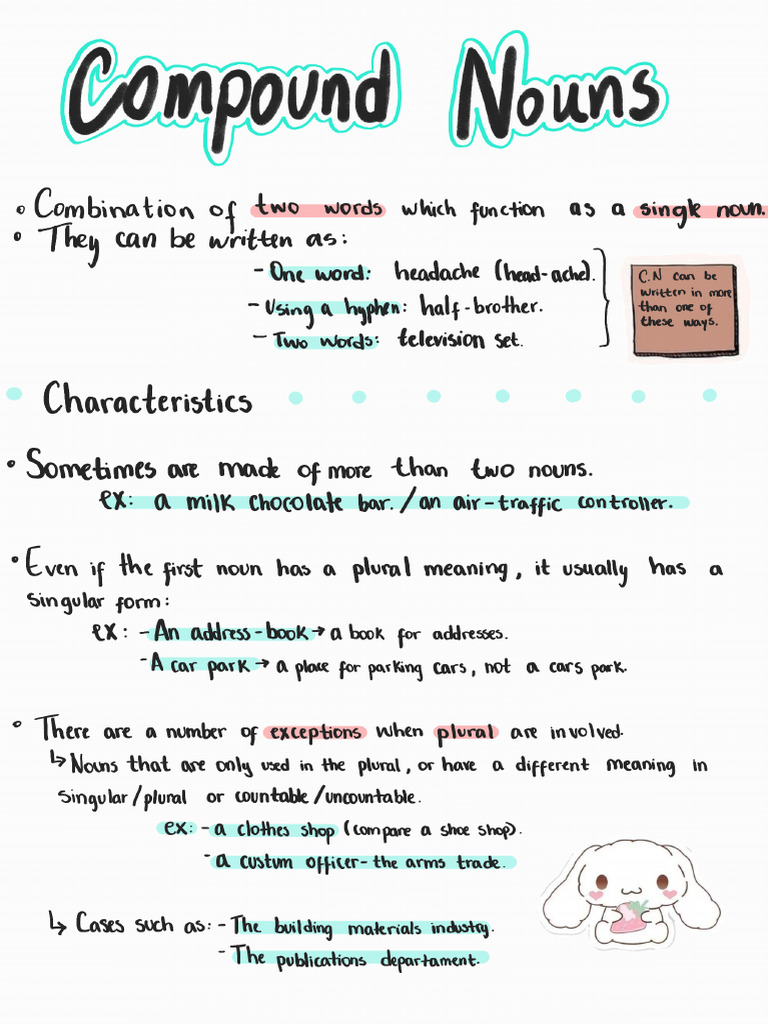 Compound Nouns
• Combination of two words which function as a single noun.
• They can be written as:
- One word: headache (head-ache).
- Using a hyphen: half-brother.
- Two words: television set.
C.N can be
written in more
than one of
these ways.
Characteristics
• Sometimes are made of more than two nouns.
ex: a milk chocolate bar. / an air-traffic controller.
• Even if the first noun has a plural meaning, it usually has a
singular form:
ex: - An address-book → a book for addresses.
- A car park → a place for parking cars, not a cars park.
• There are a number of exceptions when plural are involved.
↳ Nouns that are only used in the plural, or have a different meaning in
singular/plural or countable/uncountable.
ex: - a clothes shop (compare a shoe shop).
- a custum officer - the arms trade.
↳ Cases such as: - The building materials industry.
- The publications departament.